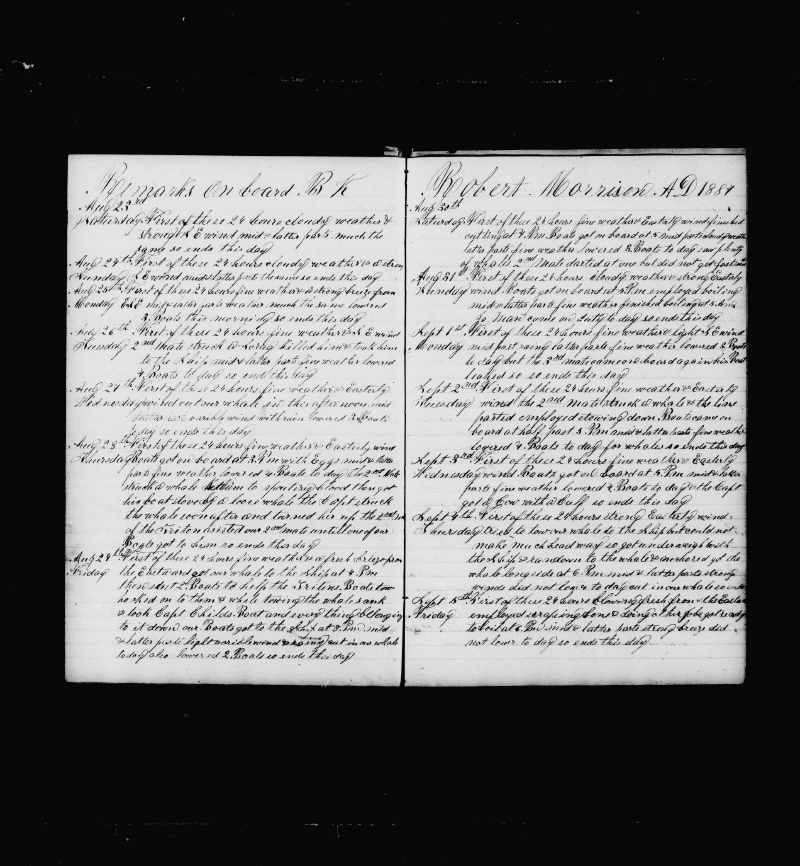 Remarks on board B K
Aug 23rd
Saturday First of these 24 hours cloudy weather &
strong S E wind mid & latter parts much the
same so ends this day
Aug 24th First of these 24 hours cloudy weather & a strong
Sunday S E wind mid & latter part the same so ends this day
Aug 25th First of these 24 hours fine weather & a strong breeze from
Monday ESE mid & latter parts weather much the same lowered
3 Boats this morning so ends this day
Aug 26th First of these 24 hours fine weather & S E wind
Tuesday 2nd Mate struck a killed him & took him
to the Ship mid & latter parts fine weather lowered
4 Boats to day so ends this day
Aug 27th First of these 24 hours fine weather & Easterly
Wednesday wind cut our whale in this afternoon mid
latter part variable wind with rain lowered 3 Boats
to day so ends this day
Aug 28th First of these 24 hours fine weather & Easterly wind
Thursday Boats got on board at 3 Pm with Eggs mid & latter
parts fine weather lowered 4 Boats to day the 2nd Mate
struck a whale set him to spouting blood then got
his boat stove by a loose whale the Capt struck
the whale soon after and turned him up the 2nd Mate
of the Triton assisted our 2nd mate until one of our
Boats got to him so ends this day
Aug 29th First of these 24 hours fine weather a fresh breeze from
Friday the Eastward got our whale to the Ship at 4 Pm
then sent 2 Boats to help the Tritons Boats tow
hitched on to them & while towing the whale sank
& took Capt Childs Boat and every thing belonging
to it down our Boats got to the Ship at 8 Pm mid
& latter parts light variable wind & raining cut in our whale
today also lowered 2 Boats so ends this day
Robert Morrison AD 1884
Aug 30th
Saturday First of these 24 hours fine weather & Easterly wind finished
cutting at 4 Pm Boats got on board at 5 mid parts cloudy weather
latter parts fine weather lowered 3 Boats to day saw plenty
of whales 2nd Mate darted at one but did not get fast
Aug 31st First of these 24 hours cloudy weather & strong Easterly
Sunday wind Boats got on board at 5 Pm employed boiling
mid & latter parts fine weather finished boiling at 5 Am
so ends this day
Sept 1st First of these 24 hours fine weather & light S E wind
Monday mid part rainy latter parts fine weather lowered 2 Boats
to day but the 3rd mate came on board again his Boat
leaked so so ends this day
Sept 2nd First of these 24 hours fine weather & Easterly
Tuesday wind the 2nd Mate struck a whale & the line
parted employed stowing down Boats came on
board at half past 5 Pm mid & latter parts fine weather
lowered 4 Boats to day for whales so ends this day
Sept 3rd First of these 24 hours fine weather & Easterly
Wednesday wind Boats got on board at 5 Pm mid & latter
parts fine weather lowered 4 Boats to day & the Capt
got a Cow with a Calf so ends this day
Sept 4th First of these 24 hours strong Easterly wind
Thursday tried to tow our whale to the Ship but could not
make much head way so got underweigh with
the Ship & ran down to the whale & anchored got the
whale longside at 6 Pm mid & latter parts strong
winds did not lower to day cut in our whale so ends
Sept 5th First of these 24 hours blowing fresh from the Eastward
Friday employed scraping bone & doing other jobs got ready
to boil at 6 Pm mid & latter parts strong breeze did
not lower to day so ends this day